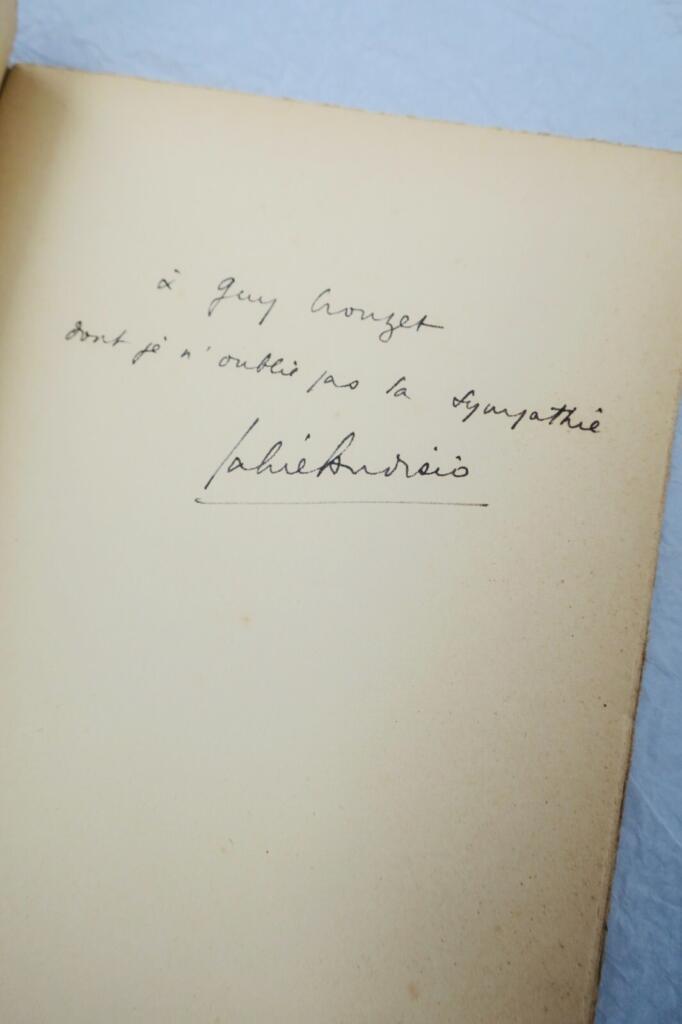 à Guy Crouzet
dont je n'oublie pas la sympathie
Gabriel Audisio